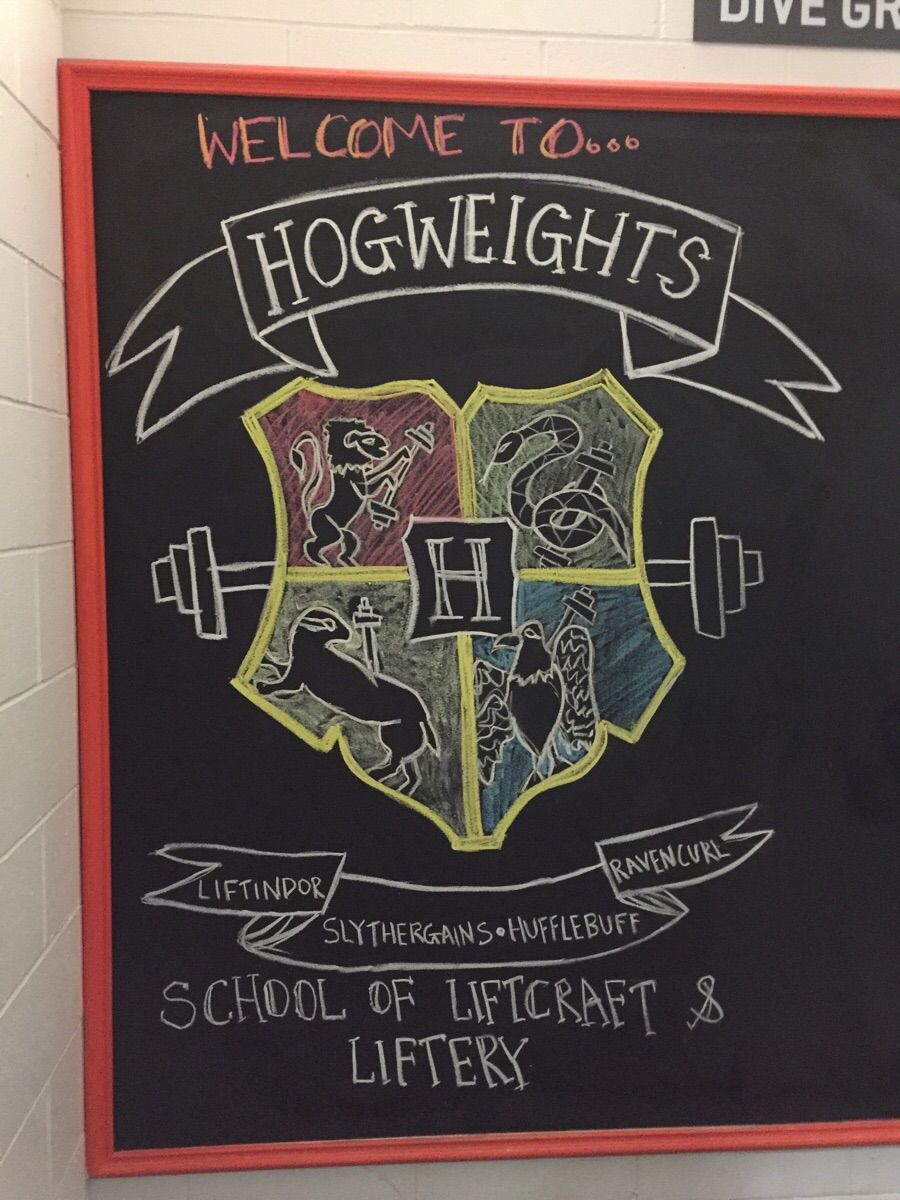 DIVE GR
WELCOME TO...
HOGWEIGHTS
H
LIFTINDOR
RAVENCURL
SLYTHERGAINS • HUFFLEBUFF
SCHOOL OF LIFTCRAFT &
LIFTERY